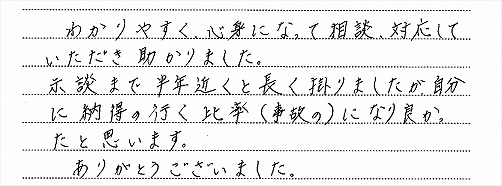 わかりやすく、心身になって相談、対応して
いただき助かりました。
示談まで半年近くと長く掛りましたが自分
に納得の行く比率(事故の)になり良かっ
たと思います。
ありがとうございました。